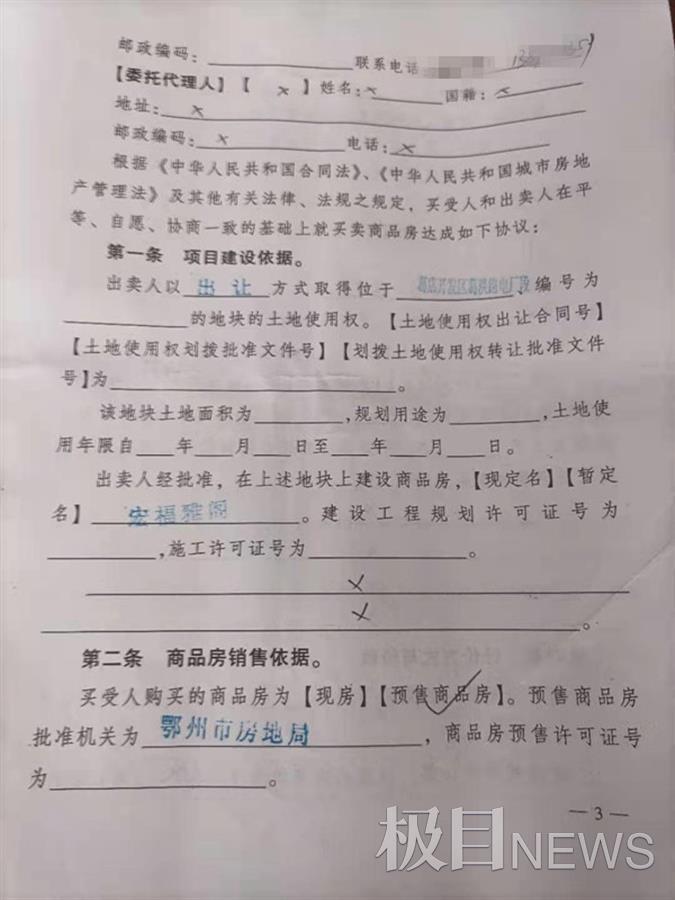 邮政编码：____________联系电话
【委托代理人】【 × 】姓名：×____国籍：×____
地址：____×____
邮政编码：____×____电话：____×____
根据《中华人民共和国合同法》、《中华人民共和国城市房地
产管理法》及其他有关法律、法规之规定，买受人和出卖人在平
等、自愿、协商一致的基础上就买卖商品房达成如下协议：
第一条 项目建设依据。
出卖人以 出让 方式取得位于 ，编号为
____________的地块的土地使用权。【土地使用权出让合同号】
【土地使用权划拨批准文件号】【划拨土地使用权转让批准文件
号】为____________。
该地块土地面积为________，规划用途为________，土地使
用年限自____年____月____日至____年____月____日。
出卖人经批准，在上述地块上建设商品房，【现定名】【暂定
名】 宏福雅阁 。建设工程规划许可证号为
____________，施工许可证号为____________。
×
×。
第二条 商品房销售依据。
买受人购买的商品房为【现房】【预售商品房】。预售商品房
批准机关为 鄂州市房地局 ，商品房预售许可证号
为____________。
— 3 —
极目NEWS